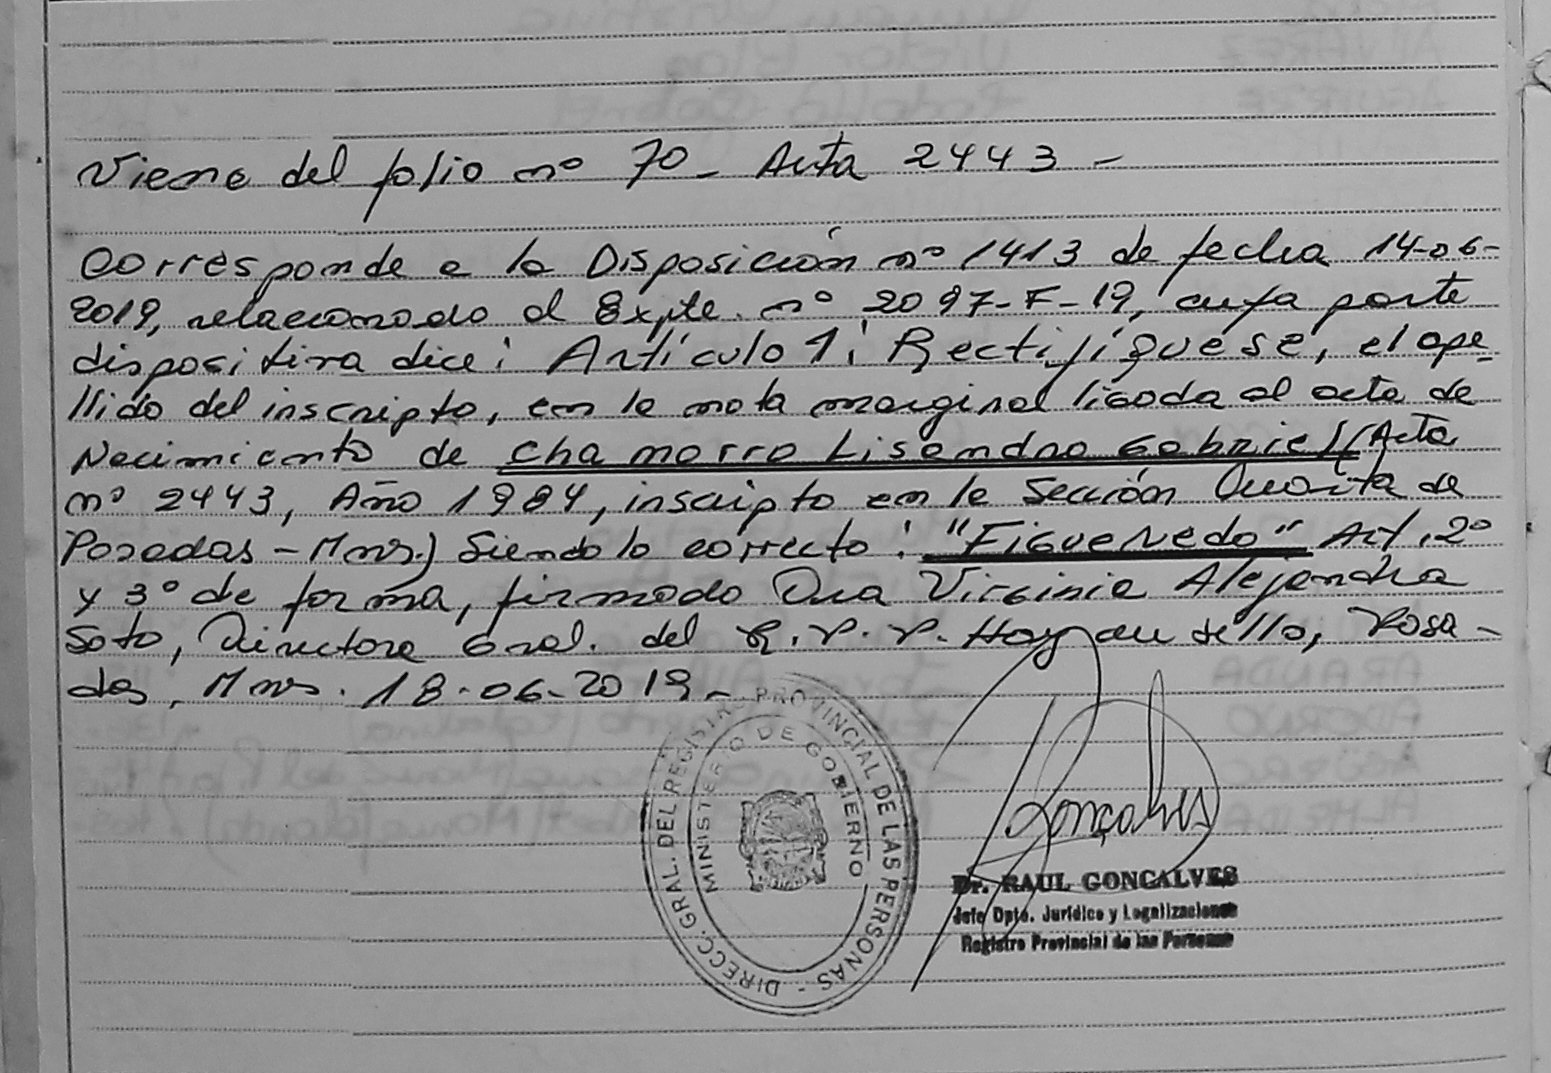 Viene del folio nº 70 - Acta 2443 -
Corresponde a la Disposición nº 1413 de fecha 14-06-
2019, relacionado al Expte. nº 2097-F-19, cuya parte
dispositiva dice: Artículo 1: Rectifíquese, el ape-
llido del inscripto, en la nota marginal ligada al acta de
Nacimiento de Chamorro Lisandro Gabriel (Acta
nº 2443, Año 1984, inscripto en la Sección Cuarta de
Posadas - Mnes.) Siendo lo correcto: "Figueredo" Art. 2º
y 3º de forma, firmado Dra Virginia Alejandra
Soto, Directora Gral. del R.P.P. Hay un sello, Posa-
das, Mnes. 18-06-2019-
DIRECC. GRAL. DEL REGISTRO PROVINCIAL DE LAS PERSONAS -
MINISTERIO DE GOBIERNO
Gonçalves
Dr. RAUL GONCALVES
Jefe Dpto. Jurídico y Legalizaciones
Registro Provincial de las Personas